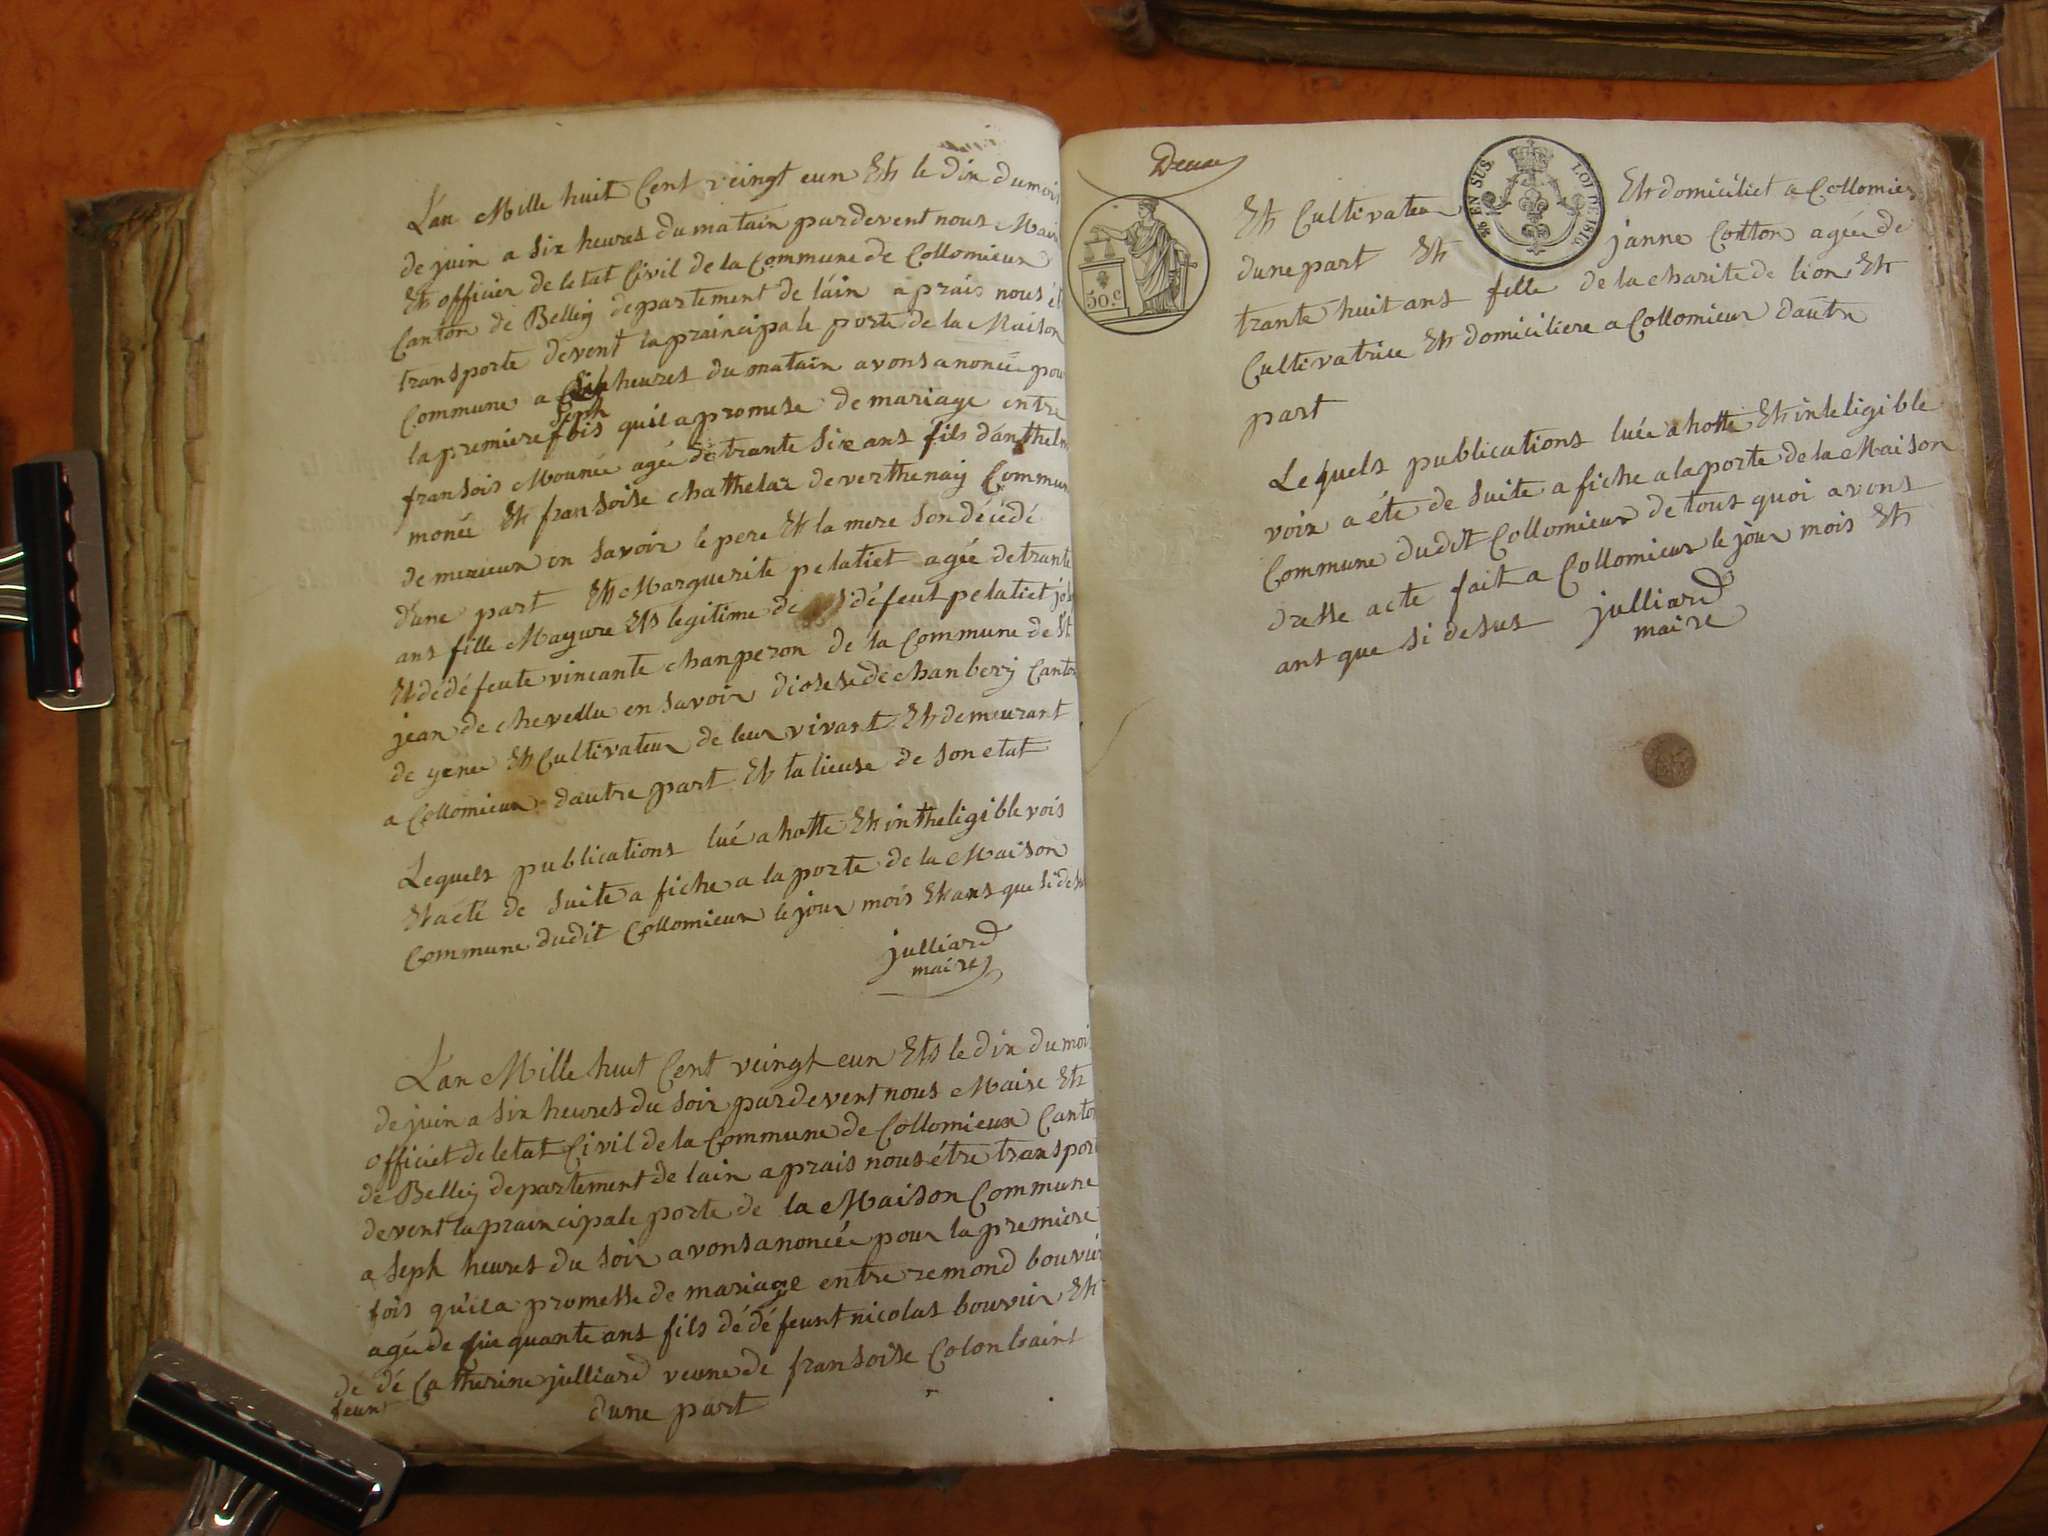 L'an Mille huit Cent veingt eun Et le dix du mois
de juin a six heures du matain pardevent nous Maire
Et officier de letat Civil de la Commune de Collomieux
Canton de Belley departement de láin aprais nous
transporte devent la praincipale porte de la Maison
Commune a heures du matain avons anoncée pour
seph
la premiere fois quil a promese de mariage entre
fransois Mounée agé de trante six ans fils danthelm
monée Et fransoise chathelaz deverthenay Commun
de merieux en savoir le pere Et la mere son décédé
dune part Et Marguerite pelatiet agée de trante
ans fille Mayure Et legitime de défeut pelatiet
Et dédéfeute vincante chanperon de la Commune de St
jean de chevellu en savoir diosese de chanbery Canton
de yenne Et Cultivateur de leur vivant Et demeurant
a Collomieux dautre part Et talieuse de son etat
Lequels publications lué a hotte Et intheligible vois
Et a été de suite a fiche a la porte de la Maison
Commune dudit Collomieux le jour mois Et ans que si desu
julliard
maire
L'an Mille huit Cent veingt eun Et le dix du moi
de juin a six heures du soir pardevent nous Maire Et
officiet de letat Civil de la Commune de Collomieux Canton
de Belley departement de lain aprais nous étre transport
devent la praincipale porte de la Maison Commune
a seph heures du soir avons anoncée pour la premiere
fois quil a promesse de mariage entre remond bouvier
agé de cinquante ans fils dédéfeunt nicolas bouvier Et
de dé Catherine julliard veuve de fransoise Colonbaint
feunt
dune part
50.c
EN SUS. LOI DE 1816.
Et Cultivateur Et domiciliet a Collomieux
dune part Et janne Cotton agée de
trante huit ans fille de la charite de lion Et
Cultivatrice Et domiciliere a Collomieux dautre
part
Lequels publications luée a hotte Et inteligible
voix a éte de suite a fiche a la porte de la Maison
Commune dudit Collomieux de tous quoi avons
dresse acte fait a Collomieux le jour mois Et
ans que si desus julliard
maire